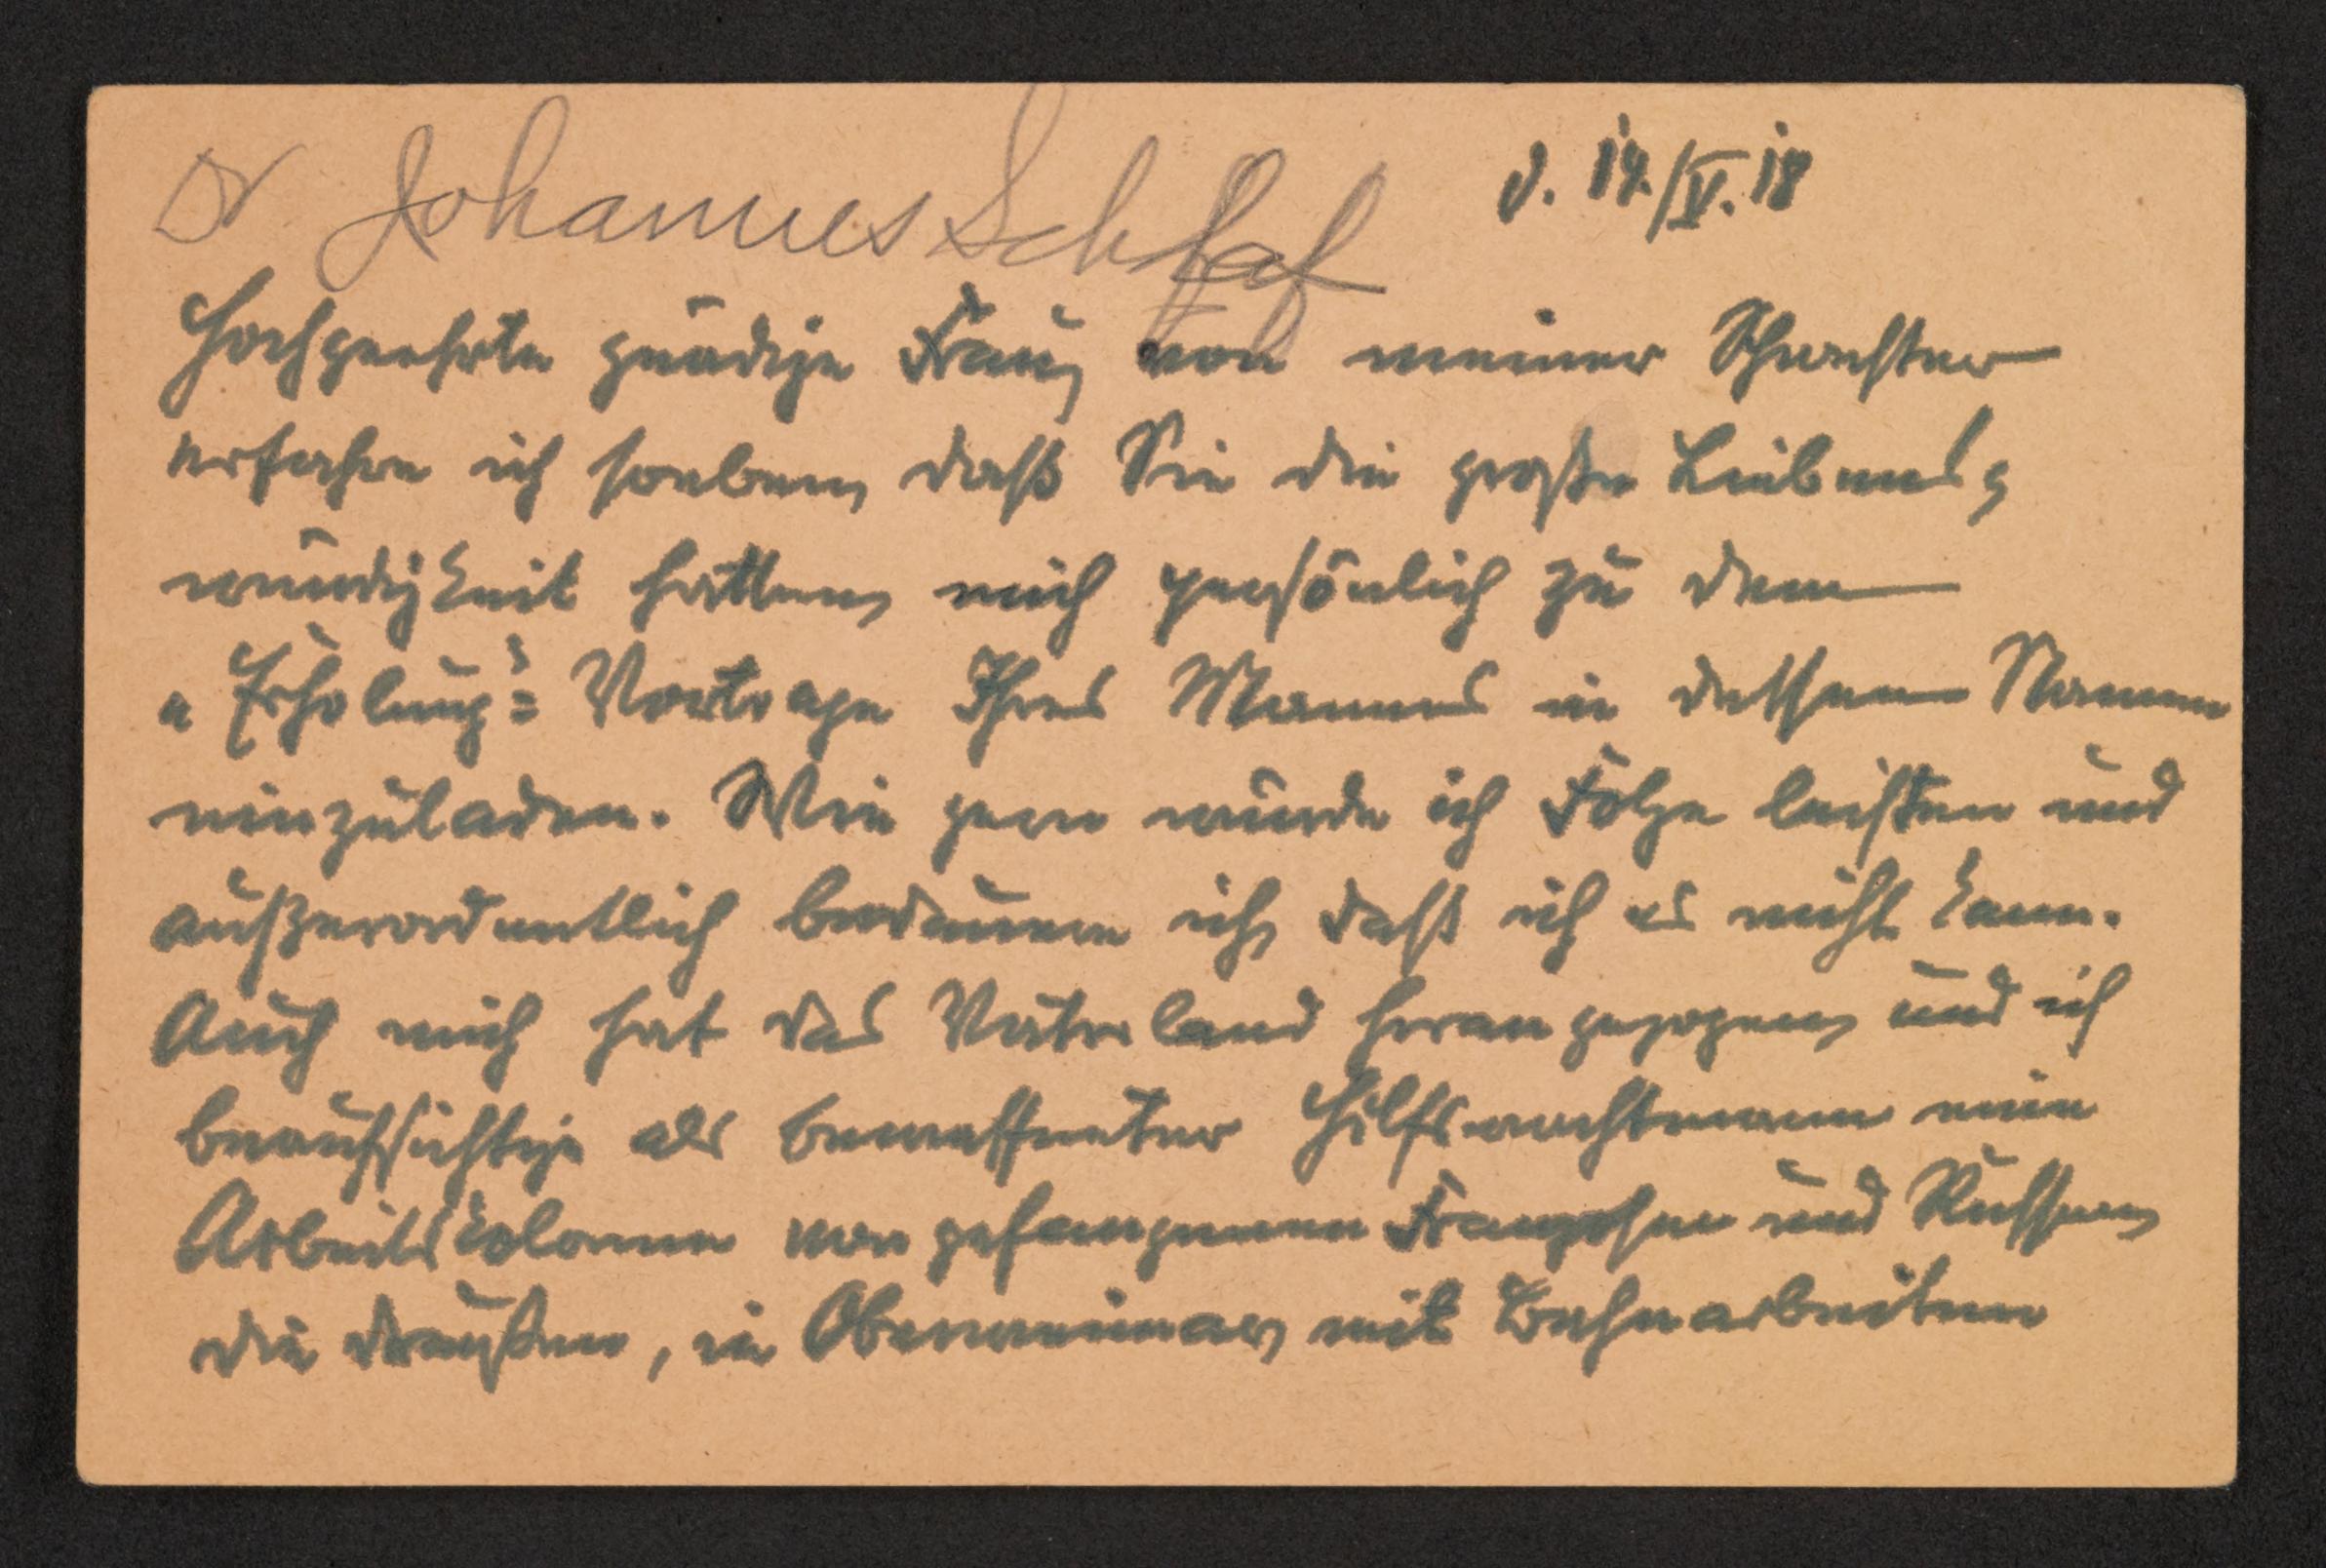 Dr Johannes Schlaf
d. 14./V. 18
Hochgeehrte gnädige Frau, von meiner Schwester
erfahre ich soeben, daß Sie die große Liebens=
würdigkeit hatten, mich persönlich zu dem
„Erholung“= Vortrage Ihres Mannes in dessen Namen
einzuladen. Wie gern würde ich Folge leisten und
außerordentlich bedauere ich, daß ich es nicht kann.
Auch mich hat das Vaterland herangezogen, und ich
beaufsichtige als bewaffneter Hilfswachtmann eine
Arbeitskolonne von gefangenen Franzosen und Russen,
die draußen, in Oberweimar, mit Bahnarbeiten